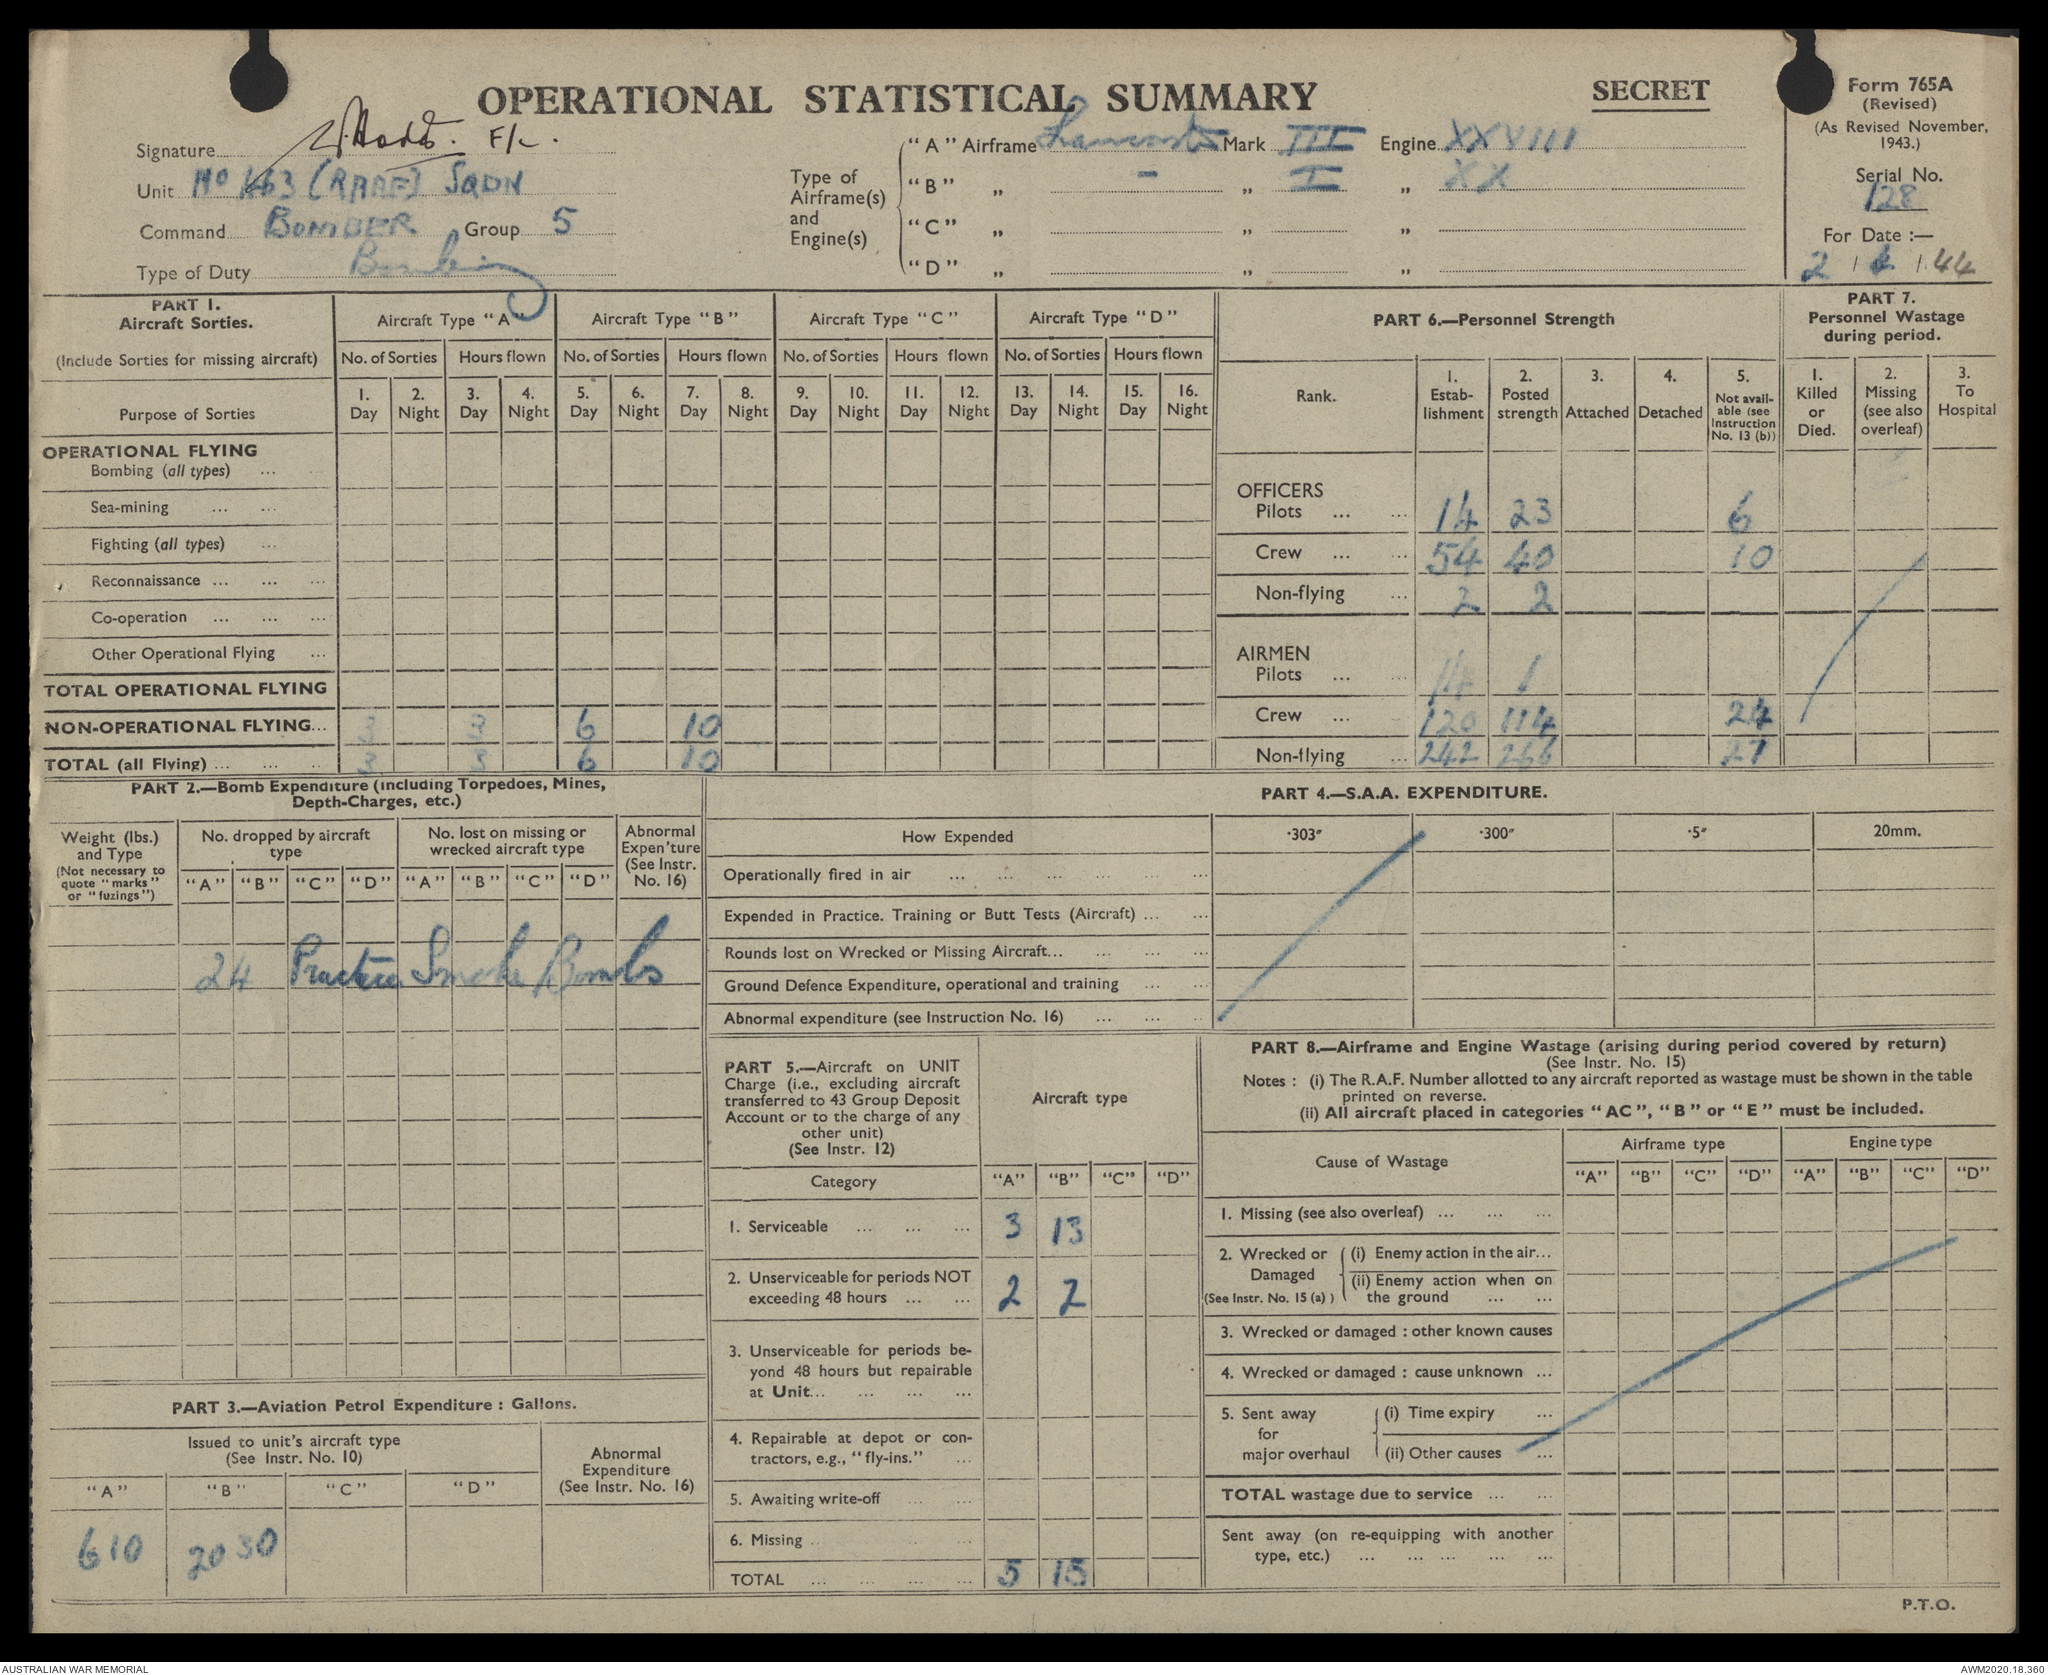 OPERATIONAL STATISTICAL SUMMARY
SECRET
Form 765A
(Revised)
(As Revised November, 1943.)
Serial No.
128
For Date :—
2 / / 44
Signature F/L.
Unit No 463 (RAAF) SQDN
Command BOMBER Group 5
Type of Duty Bombing
Type of Airframe(s) and Engine(s)
"A" Airframe Lancaster Mark III Engine XXVIII
"B" „ - „ I „ XX
"C" „ „ „
"D" „ „ „
PART 1.
Aircraft Sorties.
(Include Sorties for missing aircraft)
Aircraft Type "A" Aircraft Type "B" Aircraft Type "C" Aircraft Type "D"
No. of Sorties Hours flown No. of Sorties Hours flown No. of Sorties Hours flown No. of Sorties Hours flown
Purpose of Sorties
1. Day 2. Night 3. Day 4. Night 5. Day 6. Night 7. Day 8. Night 9. Day 10. Night 11. Day 12. Night 13. Day 14. Night 15. Day 16. Night
OPERATIONAL FLYING
Bombing (all types) ... ...
Sea-mining ... ...
Fighting (all types) ...
Reconnaissance ... ... ...
Co-operation ... ... ...
Other Operational Flying ...
TOTAL OPERATIONAL FLYING
NON-OPERATIONAL FLYING... 3 3 6 10
TOTAL (all Flying) ... ... ... 3 3 6 10
PART 6.—Personnel Strength
Rank.
1. Estab-lishment
2. Posted strength
3. Attached
4. Detached
5. Not avail-able (see Instruction No. 13 (b))
OFFICERS
Pilots ... ... 14 23 6
Crew ... ... 54 40 10
Non-flying ... 2 2
AIRMEN
Pilots ... ... 14 1
Crew ... 120 114 24
Non-flying ... 242 266 27
PART 7.
Personnel Wastage during period.
1. Killed or Died.
2. Missing (see also overleaf)
3. To Hospital
PART 2.—Bomb Expenditure (including Torpedoes, Mines,
Depth-Charges, etc.)
Weight (lbs.) and Type
(Not necessary to quote "marks" or "fuzings")
No. dropped by aircraft type
No. lost on missing or wrecked aircraft type
Abnormal Expen'ture (See Instr. No. 16)
"A" "B" "C" "D" "A" "B" "C" "D"
24 Practice Smoke Bombs
PART 4.—S.A.A. EXPENDITURE.
How Expended ·303" ·300" ·5" 20mm.
Operationally fired in air ... ... ... ... ... ...
Expended in Practice. Training or Butt Tests (Aircraft) ... ...
Rounds lost on Wrecked or Missing Aircraft... ... ... ...
Ground Defence Expenditure, operational and training ... ...
Abnormal expenditure (see Instruction No. 16) ... ... ..
PART 3.—Aviation Petrol Expenditure : Gallons.
Issued to unit's aircraft type
(See Instr. No. 10)
Abnormal Expenditure
(See Instr. No. 16)
"A" "B" "C" "D"
610 2030
PART 5.—Aircraft on UNIT
Charge (i.e., excluding aircraft
transferred to 43 Group Deposit
Account or to the charge of any
other unit)
(See Instr. 12)
Aircraft type
Category "A" "B" "C" "D"
1. Serviceable ... ... ... 3 13
2. Unserviceable for periods NOT
exceeding 48 hours ... ... 2 2
3. Unserviceable for periods be-
yond 48 hours but repairable
at Unit... ... ... ...
4. Repairable at depot or con-
tractors, e.g., "fly-ins." ...
5. Awaiting write-off ... ...
6. Missing .. ... ...
TOTAL ... ... ... ... 5 15
PART 8.—Airframe and Engine Wastage (arising during period covered by return)
(See Instr. No. 15)
Notes : (i) The R.A.F. Number allotted to any aircraft reported as wastage must be shown in the table
printed on reverse.
(ii) All aircraft placed in categories "AC", "B" or "E" must be included.
Cause of Wastage
Airframe type Engine type
"A" "B" "C" "D" "A" "B" "C" "D"
1. Missing (see also overleaf) ... ... ...
2. Wrecked or Damaged
(See Instr. No. 15 (a) )
(i) Enemy action in the air...
(ii) Enemy action when on
the ground ... ...
3. Wrecked or damaged : other known causes
4. Wrecked or damaged : cause unknown ...
5. Sent away for major overhaul
(i) Time expiry ...
(ii) Other causes ...
TOTAL wastage due to service ... ...
Sent away (on re-equipping with another
type, etc.) ... ... ... ... ...
P.T.O.
AUSTRALIAN WAR MEMORIAL
AWM2020.18.360